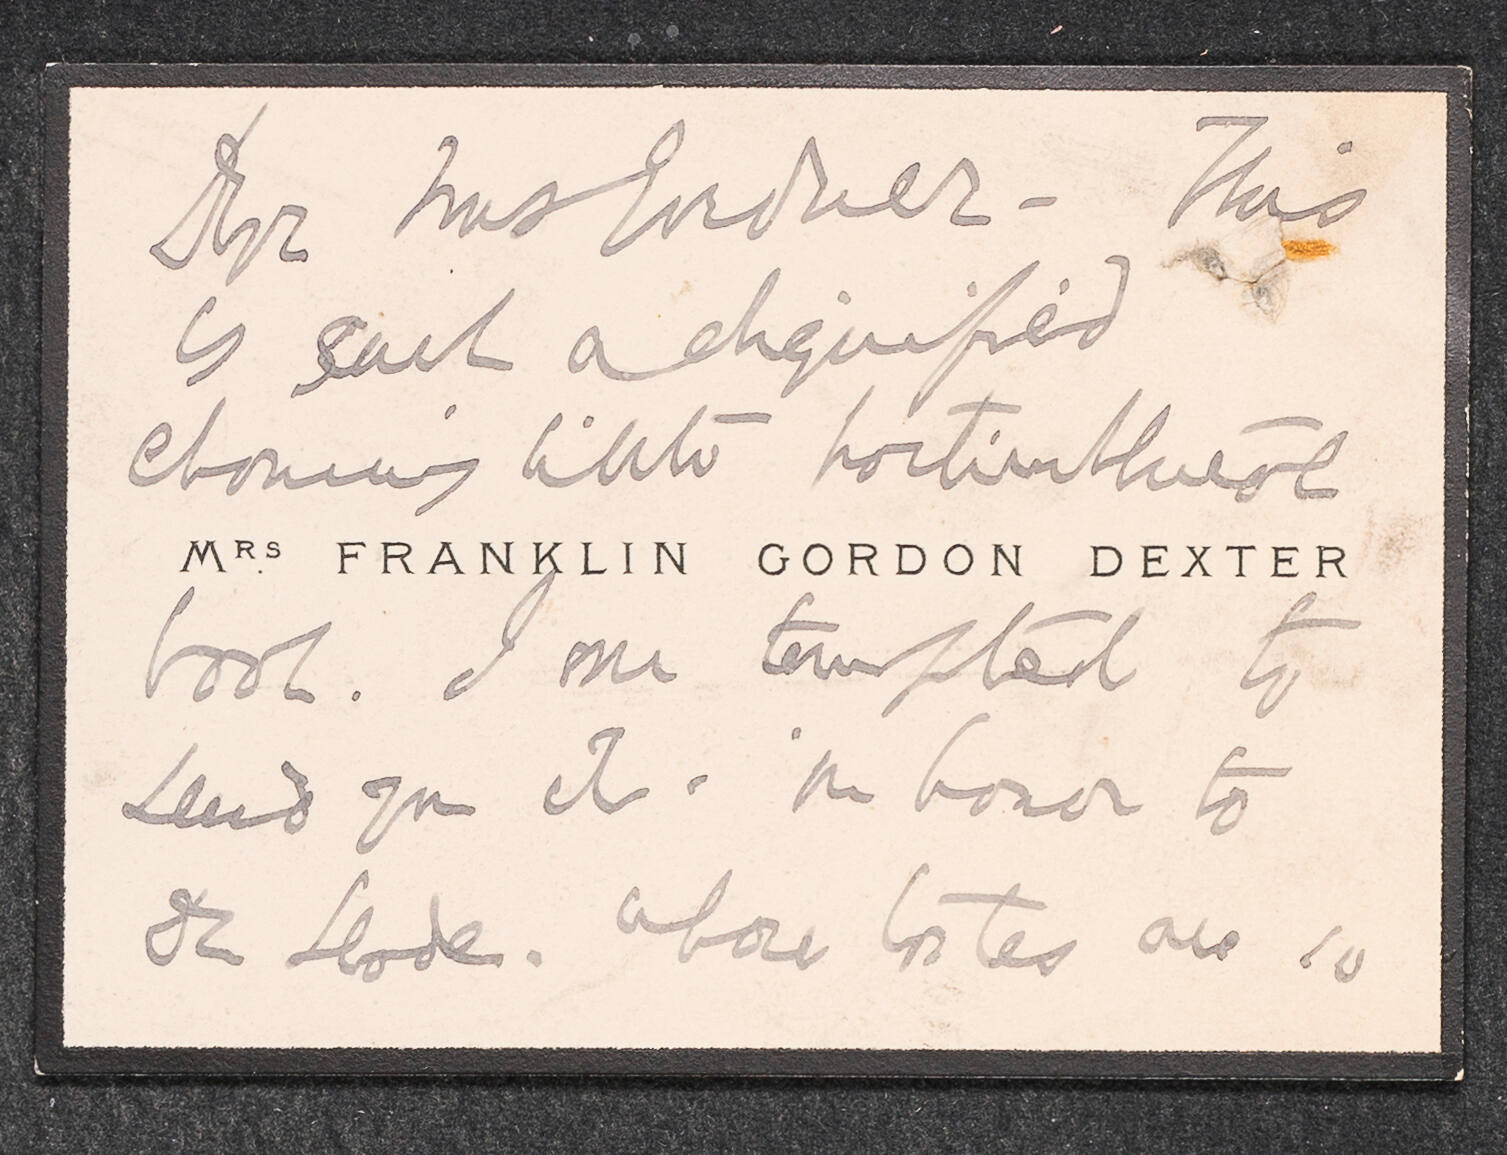 Dear Mrs Gardner - This
is such a dignified
charming little horticultural
MRS FRANKLIN GORDON DEXTER
book. I am tempted to
send you it - in honor to
the Shade. whose tastes are so